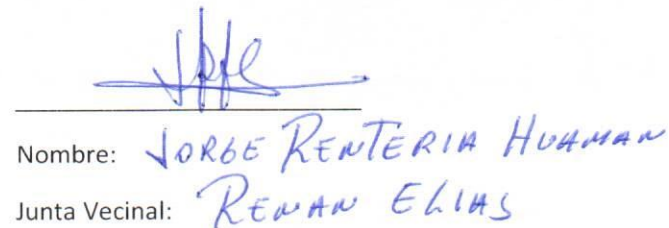 Nombre: JORGE RENTERIA HUAMAN
Junta Vecinal: RENAN ELIAS